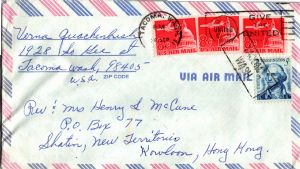 Verna Quackenbush
1928 So Gee St
Tacoma Wash, 98405
U.S.A.
ZIP CODE
TACOMA
GIVE
UNITED
AIR MAIL
AIR MAIL
AIR MAIL
VIA AIR MAIL
WASHINGTON
Rev & Mrs Henry S McCune
P.O. Box 77
Shatin, New Territorio
Kowloon, Hong Kong.